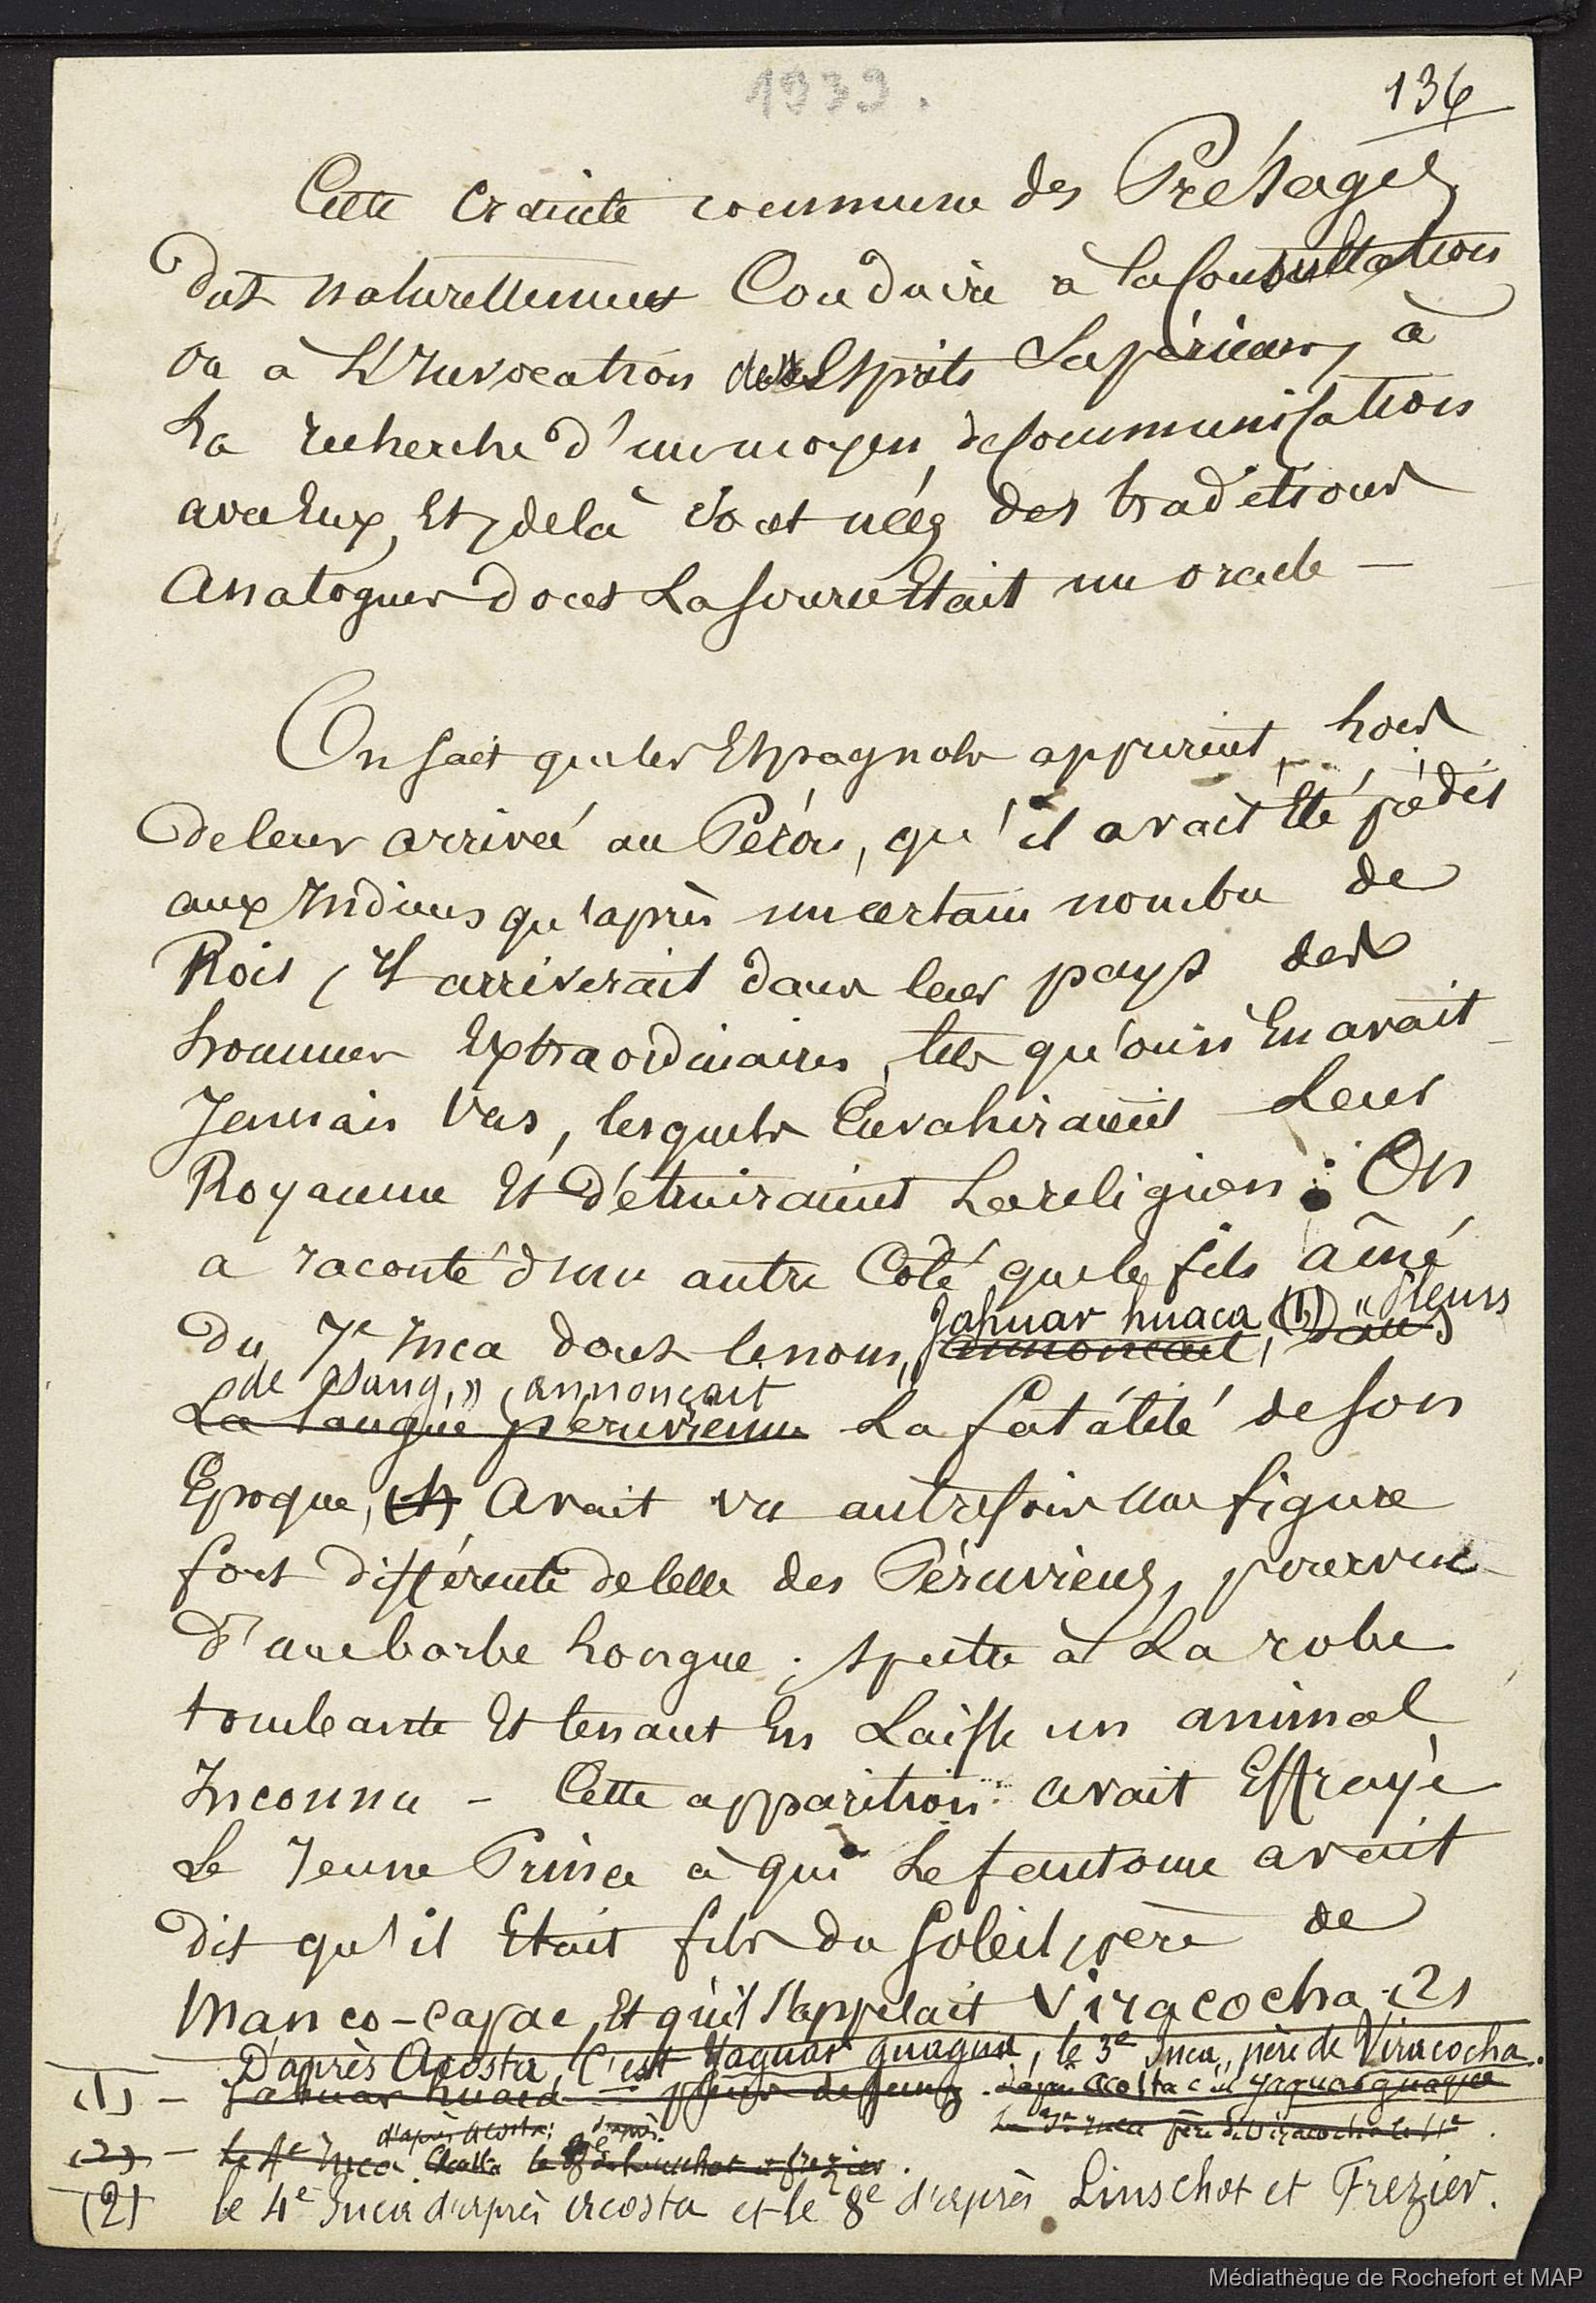 1939.
136
Cette crainte commune des Présages
dut naturellement Conduire à la Consultation
ou à L'Invocation des Esprits Supérieurs, à
La recherche d'un moyen de Communication
avec Eux, Et, de là sont nées des traditions
Analogues dont La source Etait un oracle —
On sait que les Espagnols apprirent, lors
de leur arrivée au Pérou, qu'il avait été prédit
aux Indiens qu'après un certain nombre de
Rois, Il arriverait dans leur pays des
hommes Extraordinaires, tels qu'on n'En avait
Jamais Vus, lesquels Envahiraient Leur
Royaume Et Détruiraient La religion : On
a raconté d'un autre Côté que le fils aîné
Jahuar huaca, (1) "Pleurs
du 7e Inca dont le nom, annoncait, dans
de Sang," annonçait
La langue péruvienne La fatalité de son
Epoque, (1) Avait vu autrefois une figure
fort différente de Celle des Péruviens, pourvue
d'une barbe Longue ; spectre à La robe
tombante Et tenant En Laisse un animal
Inconnu - Cette apparition avait Effrayé
Le Jeune Prince à qui Le fantome avait
dit qu'il Etait fils du Soleil, père de
Manco-Capac, Et qu'il s'appelait Viracocha (2)
D'après Acosta, C'est Yaguar guaqua, le 3e Inca, père de Viracocha.
(1) - Jahuar huaca - pleur de sang. D'après Acosta c'est yaguarguaque
Le 3e Inca père de Viracocha le 4e.
d'après Acosta; d'après
(2) - le 4e Inca le 8e de Linschot et frezier.
(2) le 4e Inca d'après Acosta et le 8e d'après Linschot et Frezier.
Médiathèque de Rochefort et MAP